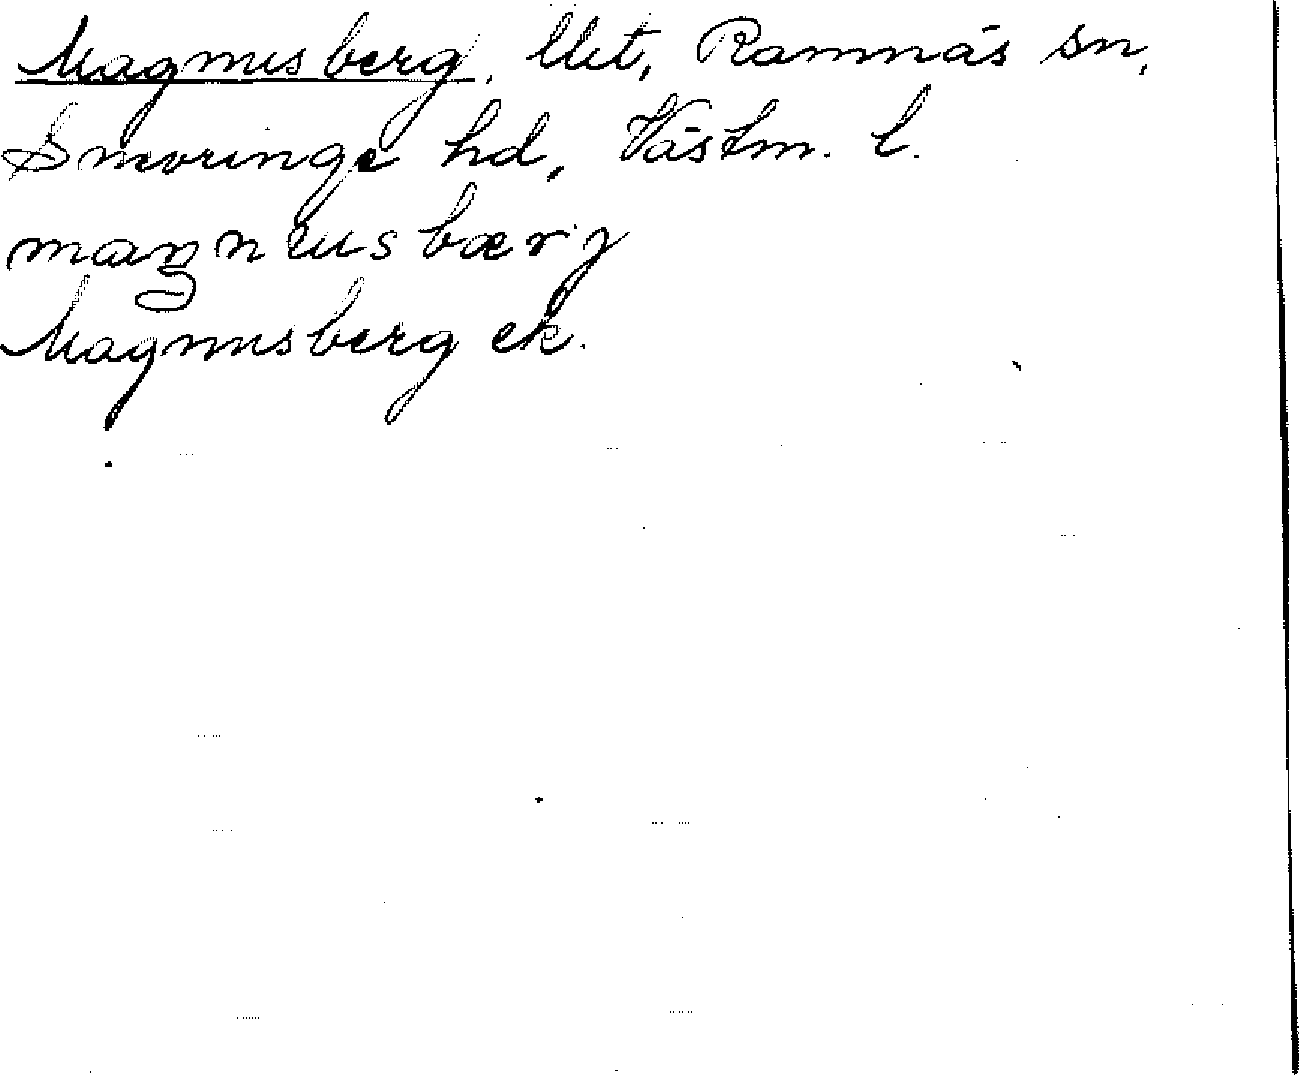 Magnusberg, llt, Ramnäs sn,
Snevringe hd, Västm. l.
maŋnusbærj
Magnusberg ek.